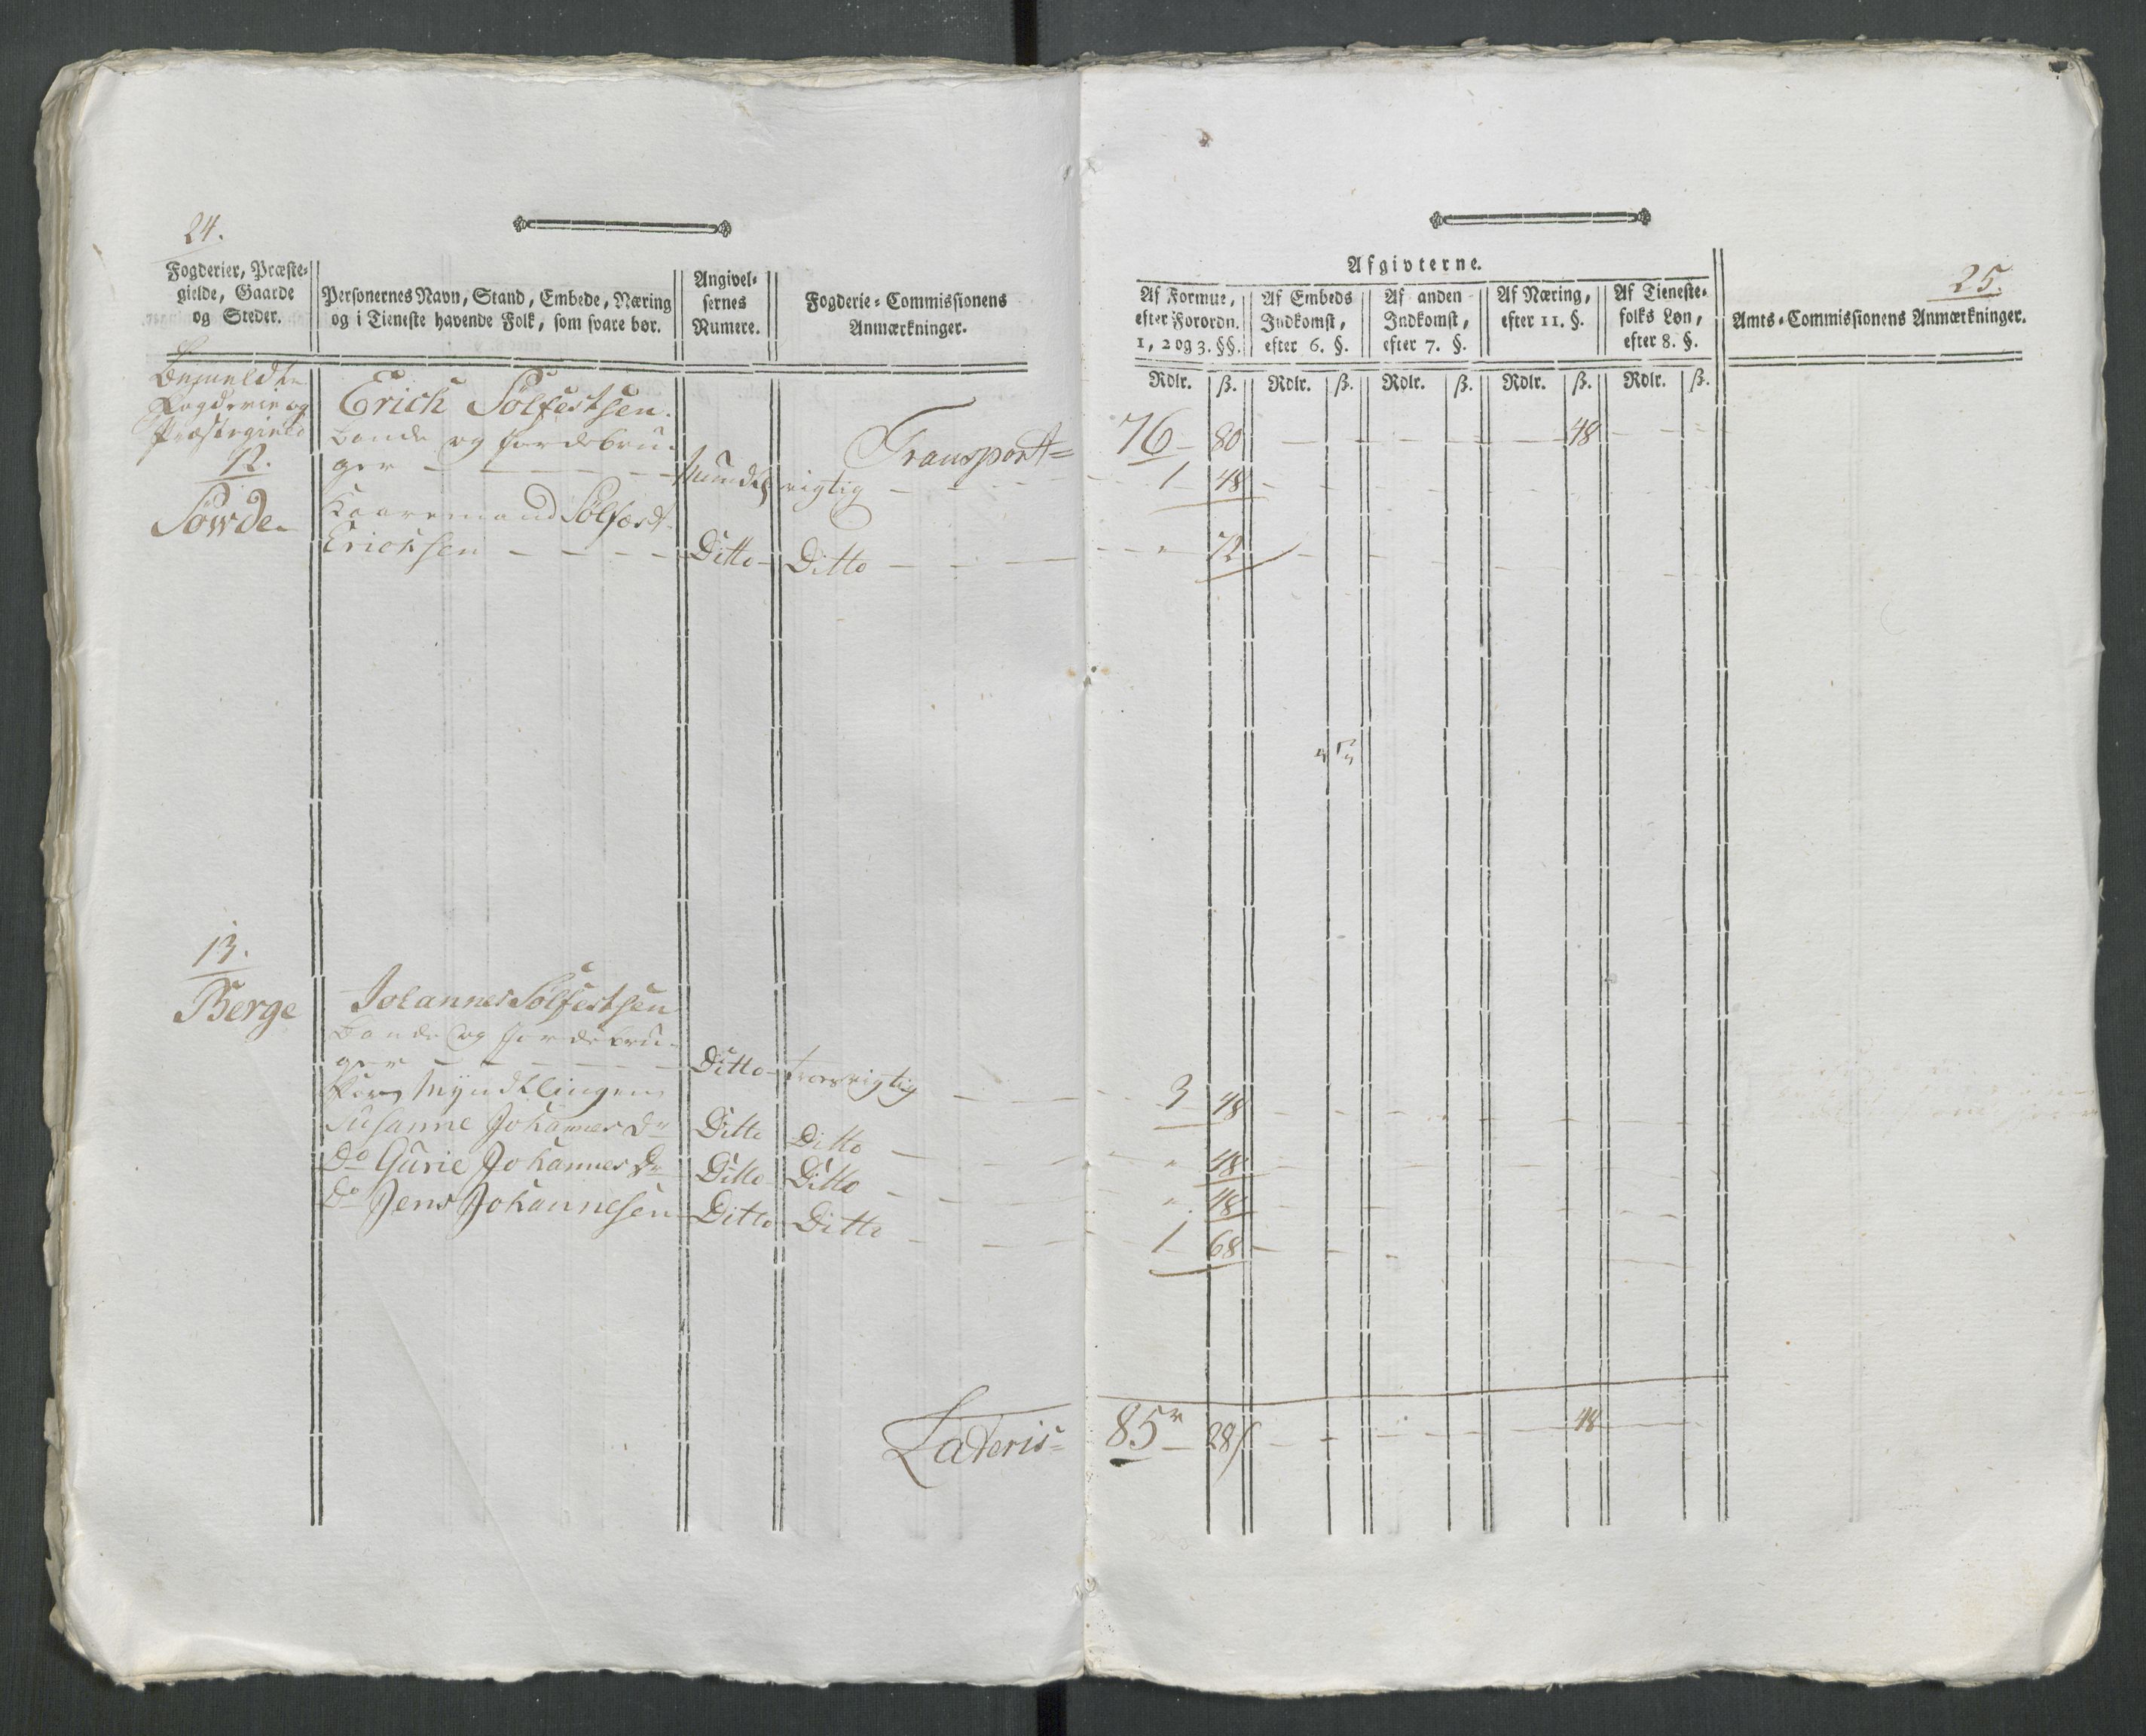 24.
Fogderier, Præste-
gielde, Gaarde
og Steder.
Personernes Navn, Stand, Embede, Næring
og i Tieneste havende Folk, som svare bør.
Angivel-
sernes
Numere.
Fogderie-Commissionens
Anmærkninger.
Bemeldte
Fogderie og
Præstegield
12.
Sowde
Erich Solfestsen.
Bonde og Jordebru-
ger
Mundtl. rigtig
Transport
Kaaremand Sölfæst
Erichsen Ditto Ditto
13.
Berge
Johannes Solfestsen
Bonde og Jordebru-
ger Ditto rigtig
Myndtlingen
Susanne Johannes Dr Ditto Ditto
Do Gurie Johannes Dr Ditto Ditto
Do Jens Johannesen Ditto Ditto
Lateris
25.
Afgivterne.
Af Formue,
efter Forordn.
1, 2 og 3. §§.
Af Embeds
Indkomst,
efter 6. §.
Af anden
Indkomst,
efter 7. §.
Af Næring,
efter 11. §.
Af Tieneste-
folks Løn,
efter 8. §.
Amts-Commissionens Anmærkninger.
Rdlr. ß. Rdlr. ß. Rdlr. ß. Rdlr. ß. Rdlr. ß.
76 80 48
1 48
" 72
3 48
" 48
" 48
1 68
85 28 48